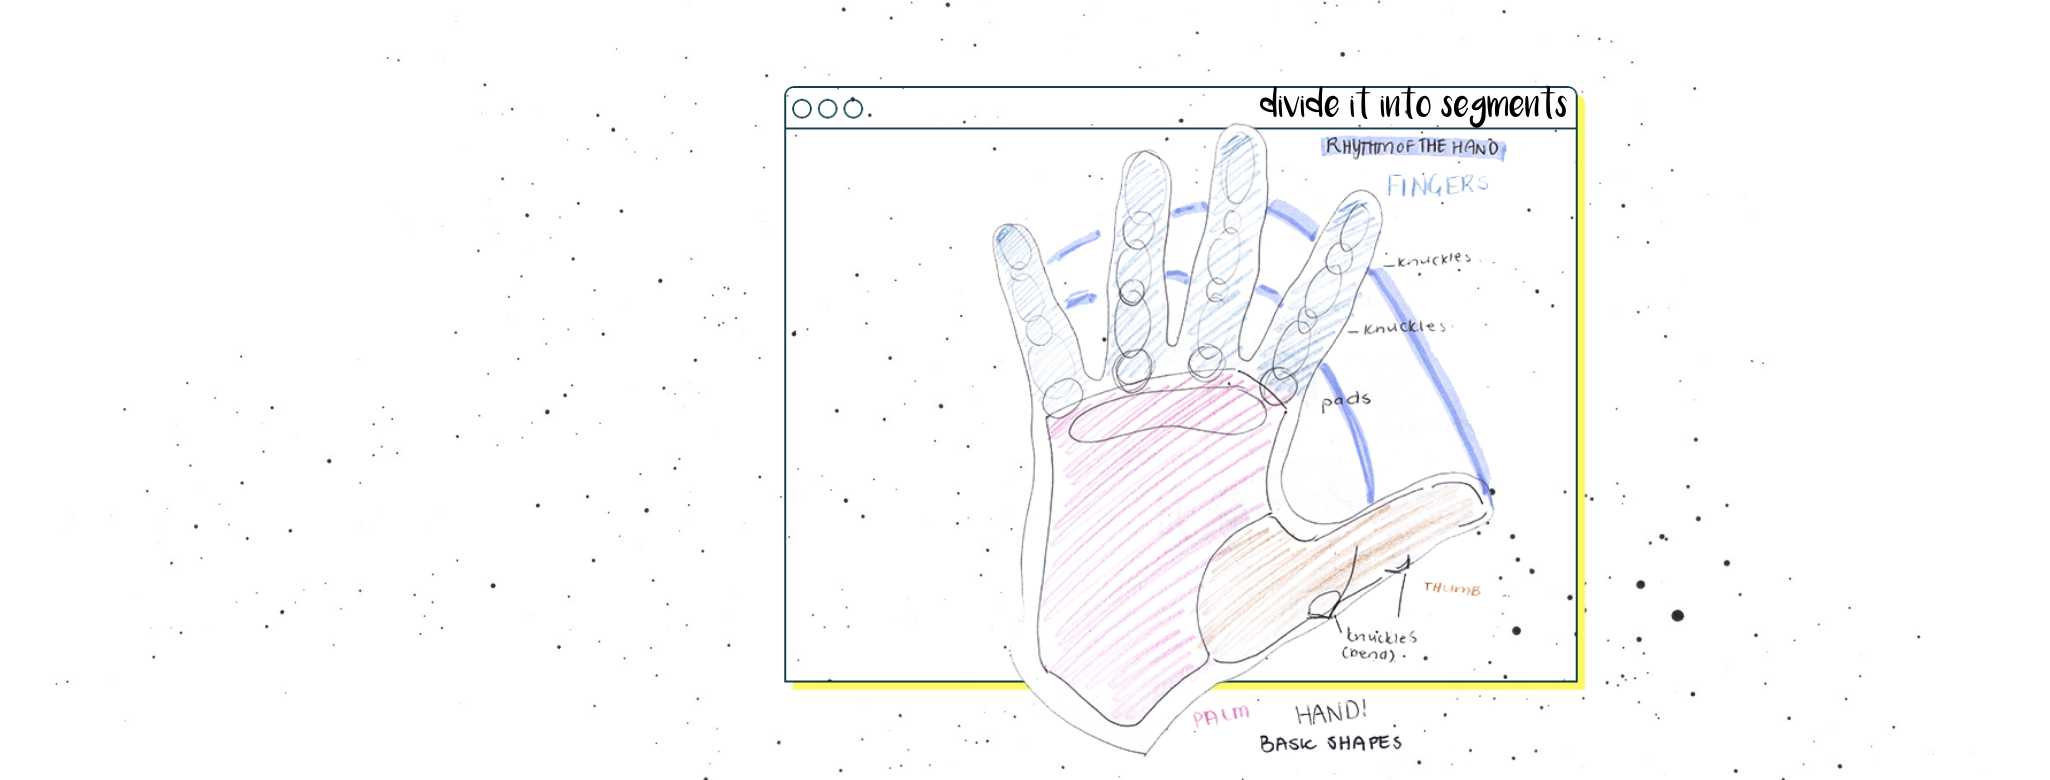 divide it into segments
RHYTHM OF THE HAND
FINGERS
knuckles
knuckles
pads
THUMB
knuckles
(bend)
PALM
HAND!
BASIC SHAPES